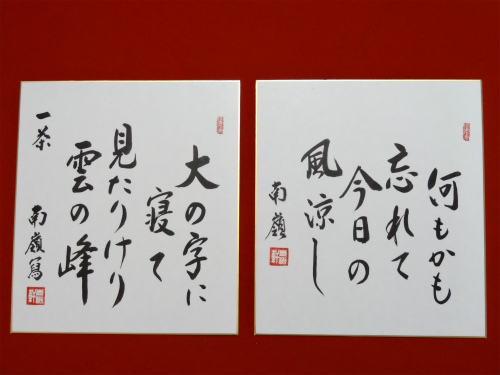 何もかも
忘れて
今日の
風涼し
南嶺
大の字に
寝て
見たりけり
雲の峰
一茶
南嶺写